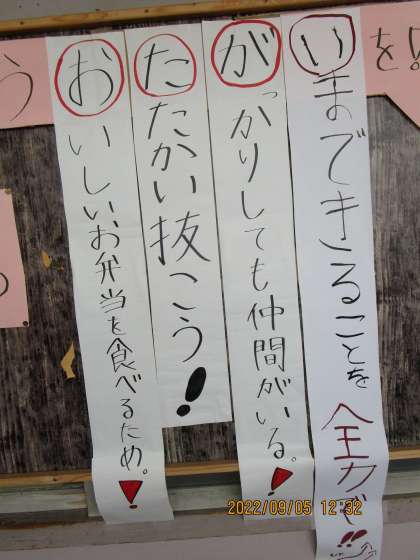 を!
いまできることを全力で!!
がっかりしても仲間がいる。!
たたかい抜こう!
おいしいお弁当を食べるため。!
う
2022/09/05 12:32